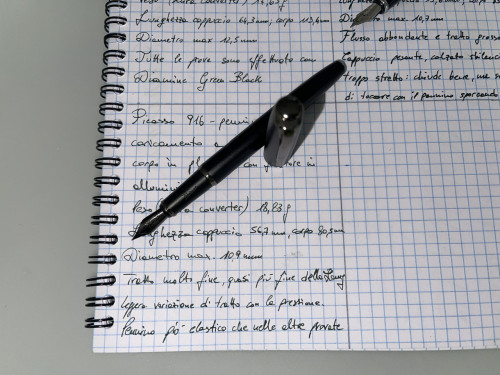 Lunghezza cappuccio 64,3 mm, corpo 113,4 mm
Diametro max 12,5 mm
Tutte le prove sono effettuate con
Diamine Green Black
Picasso 916 - penni
caricamento a
corpo in con in
allumini
Peso converter) 18,83 g
Lunghezza cappuccio 56,7 mm, corpo
Diametro max. 10,9 mm
Tratto molto fine, quasi più fine della Lamy
leggera variazione di tratto con la pressione.
Pennino più elastico che nelle altre provate
Diametro max. 10,7 mm
Flusso abbondante e tratto grosso
Cappuccio pesante, calzato
troppo stretto: chiude bene, ma
di toccare con il pennino sporcando